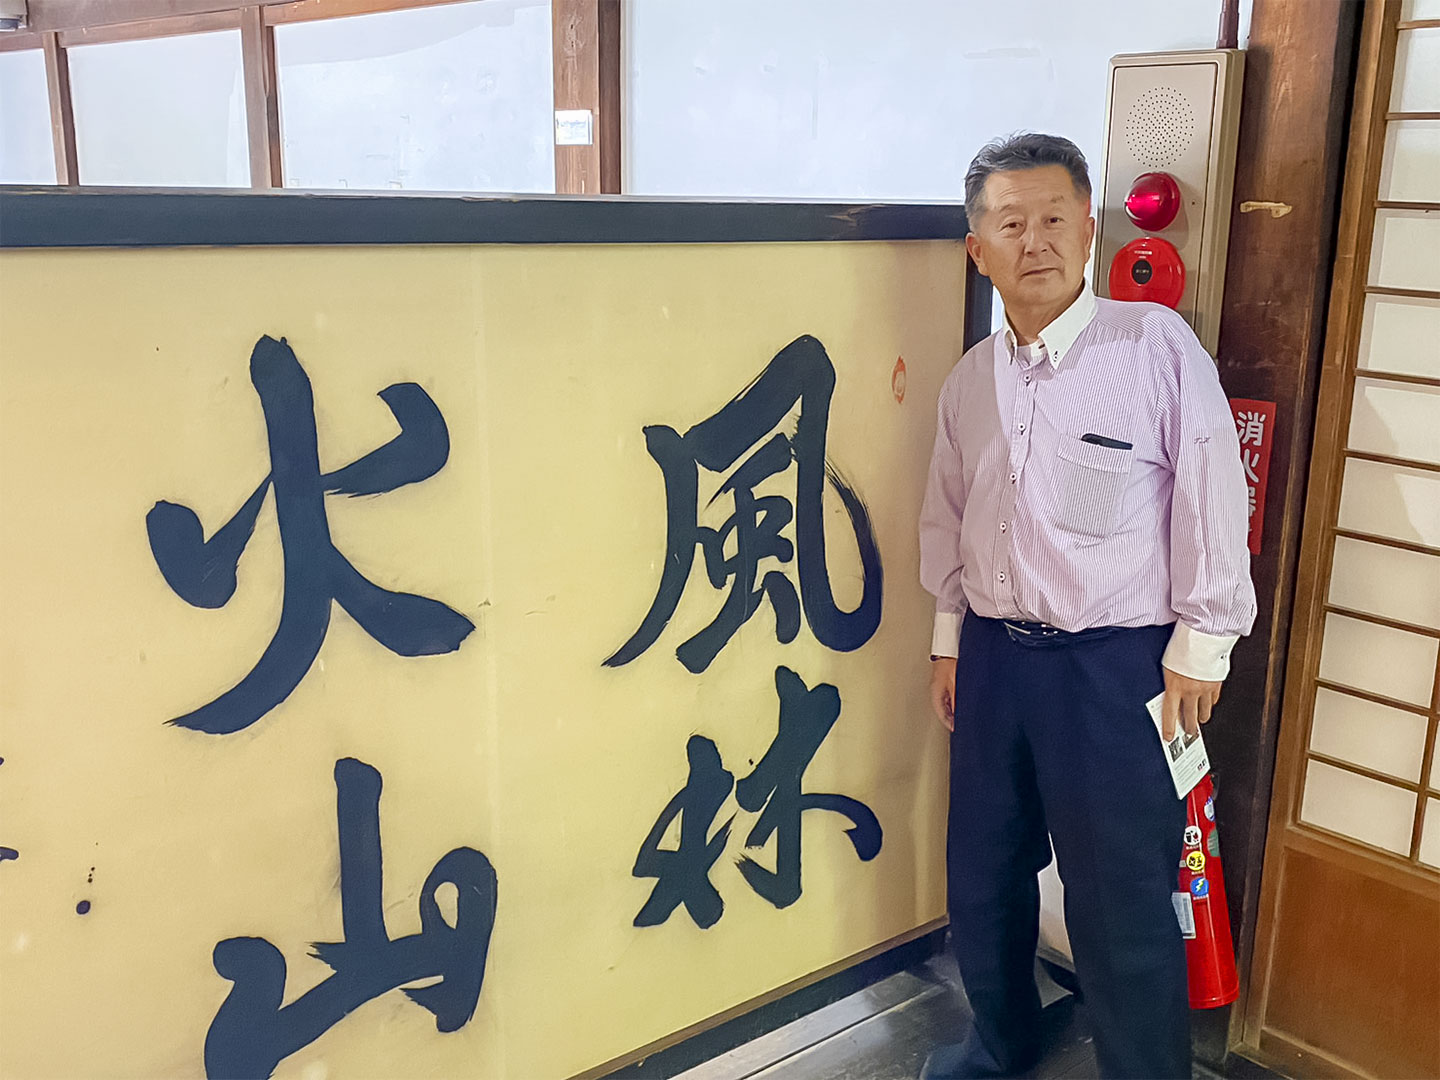 風林
火山
消火器